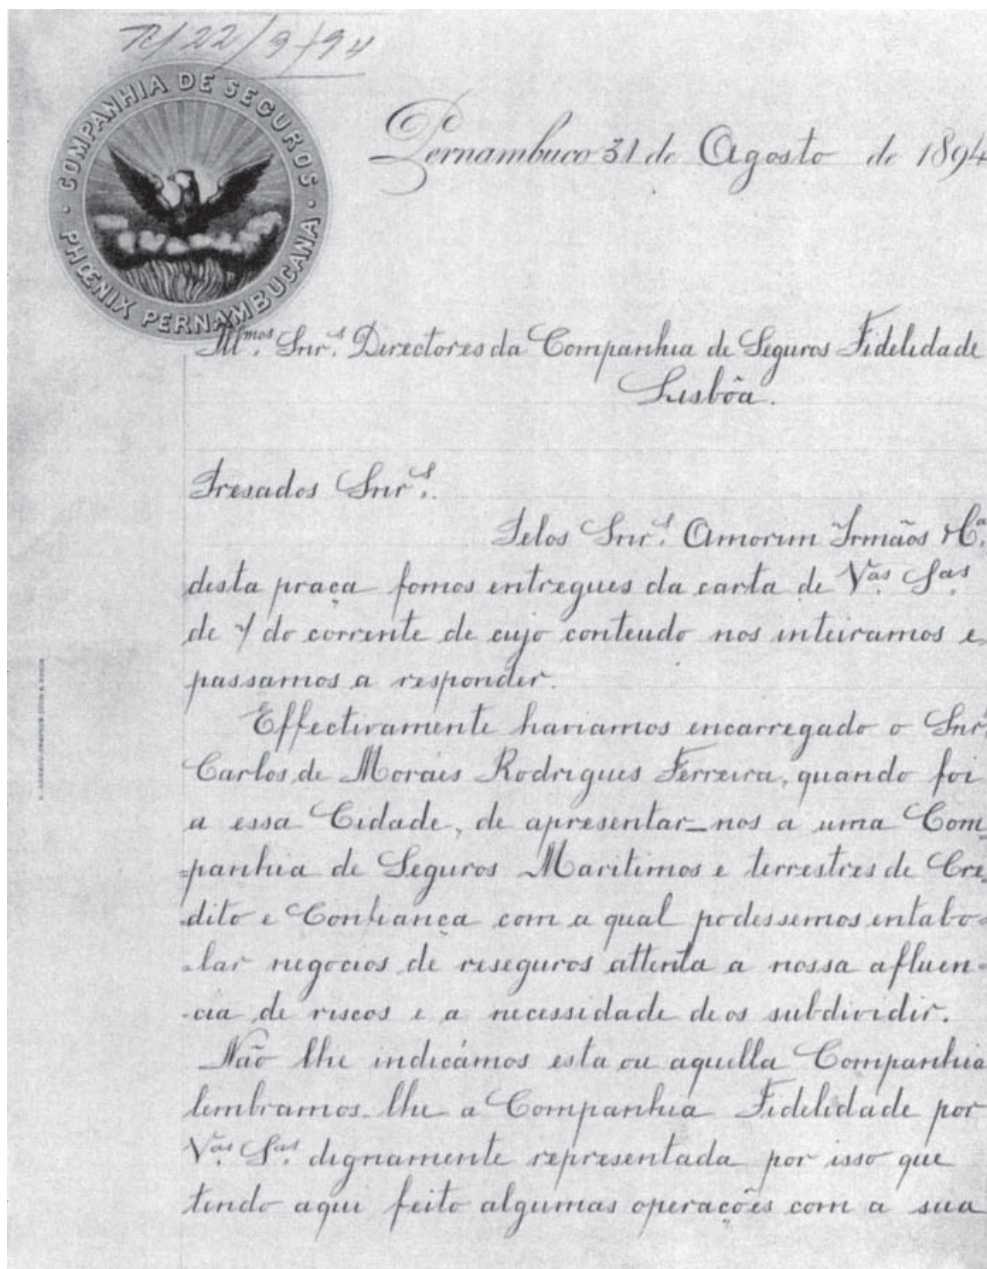 R/22/9/94
COMPANHIA DE SEGUROS
PHŒNIX PERNAMBUCANA
Pernambuco 31 de Agosto de 1894
Illmos. Snrs. Directores da Companhia de Seguros Fidelidade
Lisbôa.
Presados Snrs.
Pelos Snrs. Amorim Irmãos & Ca.
desta praça fomos entregues da carta de Vas. Sas.
de 7 do corrente de cujo conteudo nos inteiramos e
passamos a responder.
Effectivamente haviamos encarregado o Snr.
Carlos de Moraes Rodrigues Ferreira, quando foi
a essa Cidade, de apresentar-nos a uma Com-
=panhia de Seguros Maritimos e terrestres de Cre-
dito e Confiança com a qual podessemos entabo-
-lar negocios de reseguros attenta a nossa afluen-
-cia de riscos e a necessidade de os subdividir.
Não lhe indicámos esta ou aquella Companhia
lembramos-lhe a Companhia Fidelidade por
Vas. Sas. dignamente representada por isso que
tendo aqui feito algumas operações com a sua